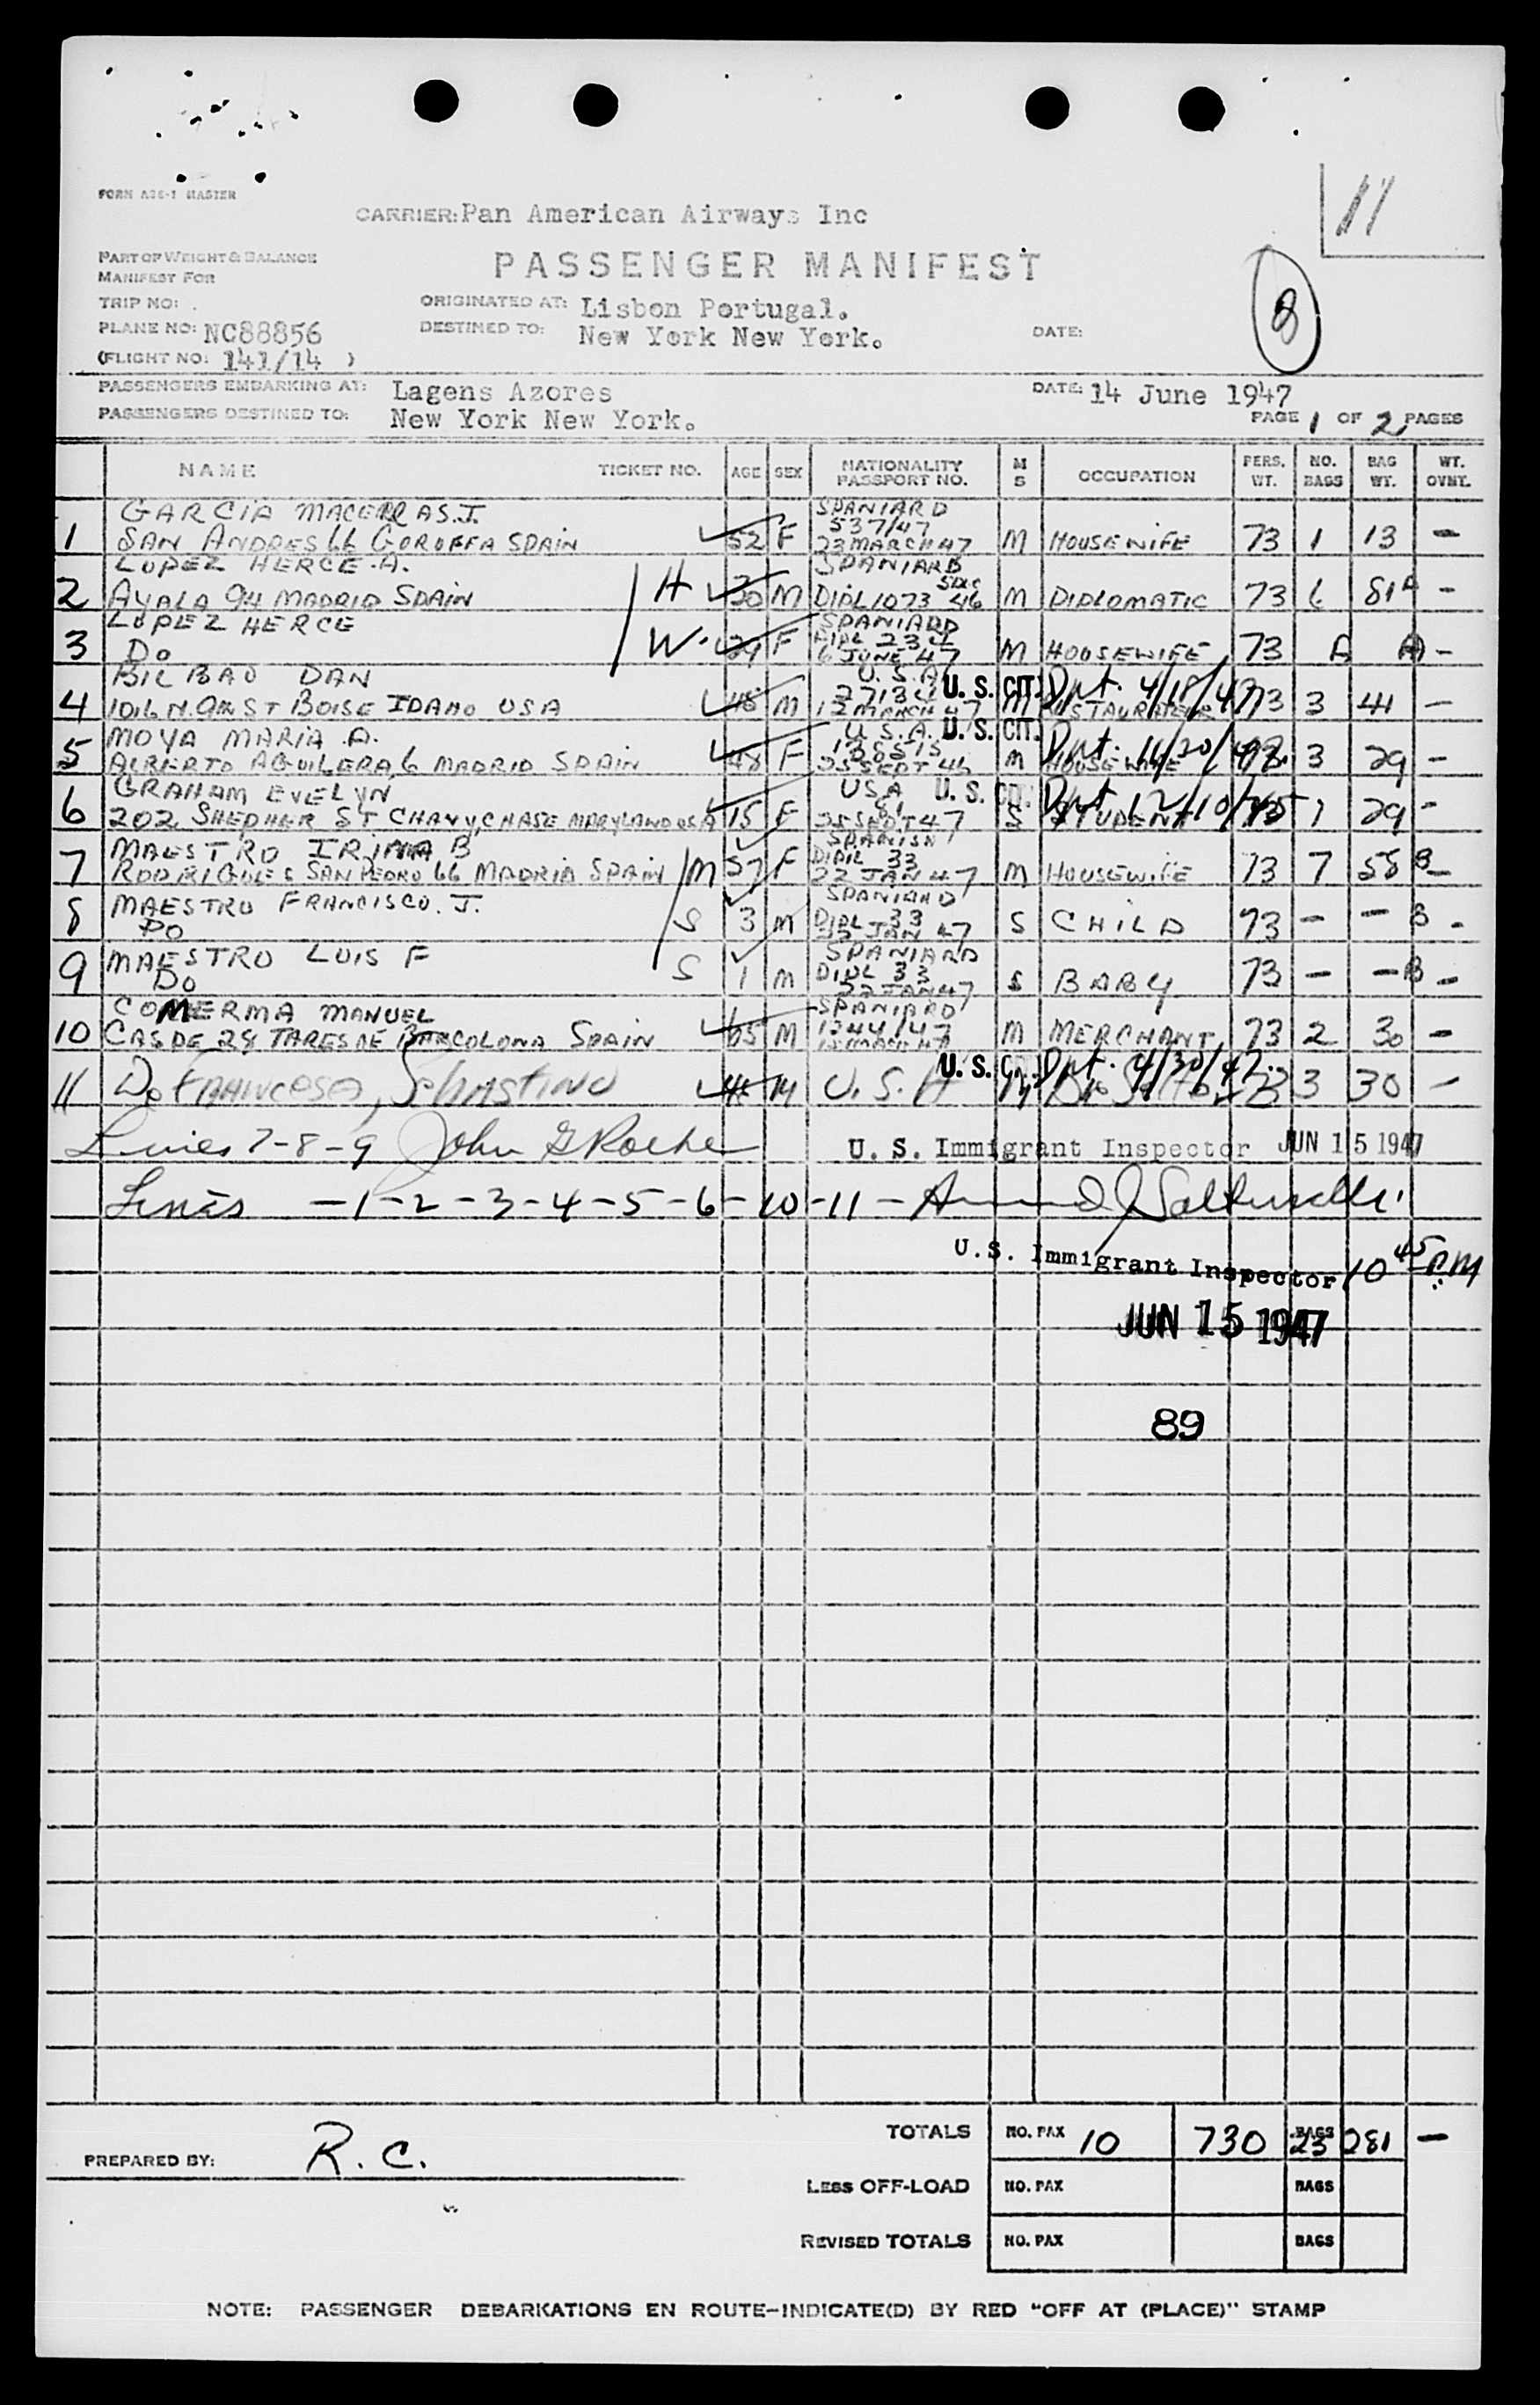 11
FORM A26-1 MASTER
CARRIER: Pan American Airways Inc
PART OF WEIGHT & BALANCE
MANIFEST FOR
PASSENGER MANIFEST
8
TRIP NO: .
ORIGINATED AT: Lisbon Portugal.
PLANE NO: NC88856
DESTINED TO: New York New York.
DATE:
(FLIGHT NO: 141/14 )
PASSENGERS EMBARKING AT: Lagens Azores
DATE: 14 June 1947
PASSENGERS DESTINED TO: New York New York.
PAGE 1 OF 2 PAGES
NAME TICKET NO. AGE SEX NATIONALITY PASSPORT NO. M S OCCUPATION PERS. WT. NO. BAGS BAG WT. WT. OVNT.
GARCIA MACERRAS.J. SPANIARD
537/47
1 SAN ANDRES 66 SPAIN 52 F 23 MARCH 47 M HOUSEWIFE 73 1 13 -
LOPEZ HERCE .A. SPANIARD
2 AYALA 94 MADRID SPAIN H 30 M DIPL 1073 5 DEC 46 M DIPLOMATIC 73 6 81 A -
LOPEZ HERCE SPANIARD
3 DO W. 29 F 6 JUNE 47 M HOUSEWIFE 73 A A -
BILBAO DAN U.S.A. U.S. CIT. Dpt. 4/18/47
4 1016 N. 9TH ST BOISE IDAHO USA 48 M 12 MARCH 47 M 73 3 41 -
MOYA MARIA .A. U.S.A. U.S. CIT.
5 ALBERTO AGUILERA 6 MADRID SPAIN 48 F 25 SEPT 46 M HOUSEWIFE 3 29 -
GRAHAM EVELYN USA U.S. CIT.
6 202 SHEPHER ST CHAVY, CHASE MARYLAND USA 15 F 25 SEPT 47 S STUDENT 1 29 -
MAESTRO IRINA B SPANISH
7 RODRIGUES SAN PEDRO 66 MADRID SPAIN M 57 F DIPL 33 22 JAN 47 M HOUSEWIFE 73 7 58 B -
MAESTRO FRANCISCO. J. SPANIARD
8 DO S 3 M DIPL 33 22 JAN 47 S CHILD 73 - - B -
MAESTRO LUIS F SPANIARD
9 DO S 1 M DIPL 33 22 JAN 47 S BABY 73 - - B -
COMERMA MANUEL SPANIARD
10 28 SPAIN 65 M 1244/47 M MERCHANT 73 2 30 -
U.S. Dpt. 4/30/47
11 De FRANCESO, SEBASTINO M U.S.A M 3 30 -
Lines 7-8-9 John G Roche U. S. Immigrant Inspector JUN 15 1947
Lines -1-2-3-4-5-6-10-11-
U.S. Immigrant Inspector 10 45 PM
JUN 15 1947
89
TOTALS NO. PAX 10 730 BAGS 23 281 -
PREPARED BY: R.C.
LESS OFF-LOAD NO. PAX BAGS
REVISED TOTALS NO. PAX BAGS
NOTE: PASSENGER DEBARKATIONS EN ROUTE-INDICATE(D) BY RED "OFF AT (PLACE)" STAMP